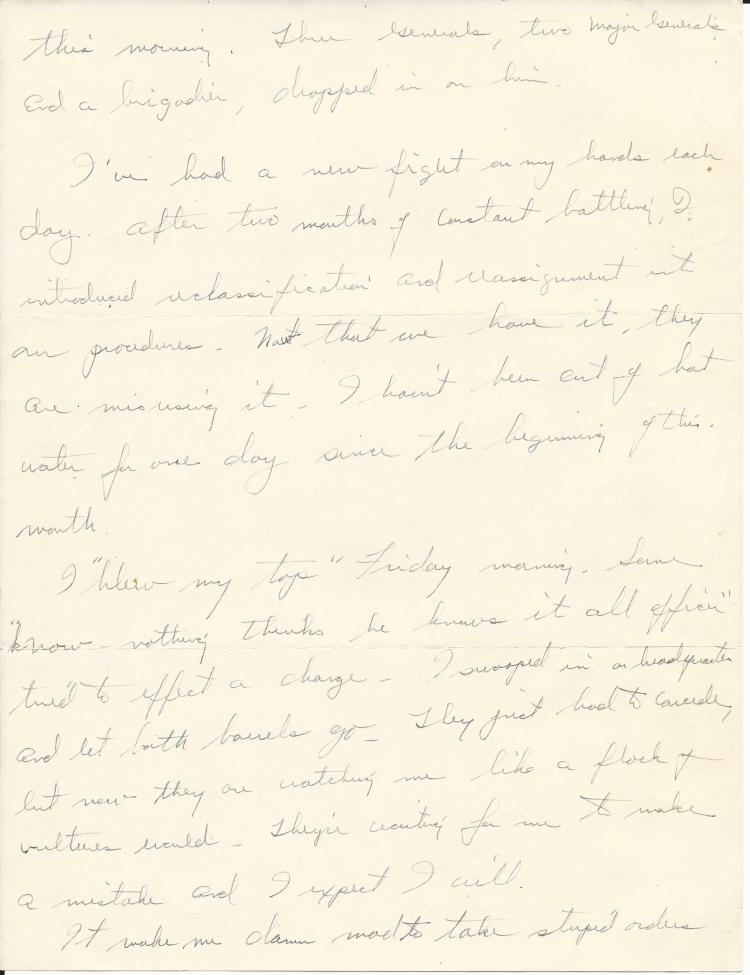 this morning. Three Generals, two Major Generals
and a brigadier, dropped in on him.
I've had a new fight on my hands each
day. After two months of constant battling, I
introduced reclassification and reassignment into
our procedures. Now that we have it, they
are misusing it. I havn't been out of hot
water for one day since the beginning of this
month.
I "blew my top" Friday morning. Some
"know-nothing thinks he knows it all officer"
tried to effect a change. I swooped in on headquarters
and let both barrels go. They just had to concede,
but now they are watching me like a flock of
vultures would. They're waiting for me to make
a mistake and I expect I will.
It make me damn mad to take stupid orders